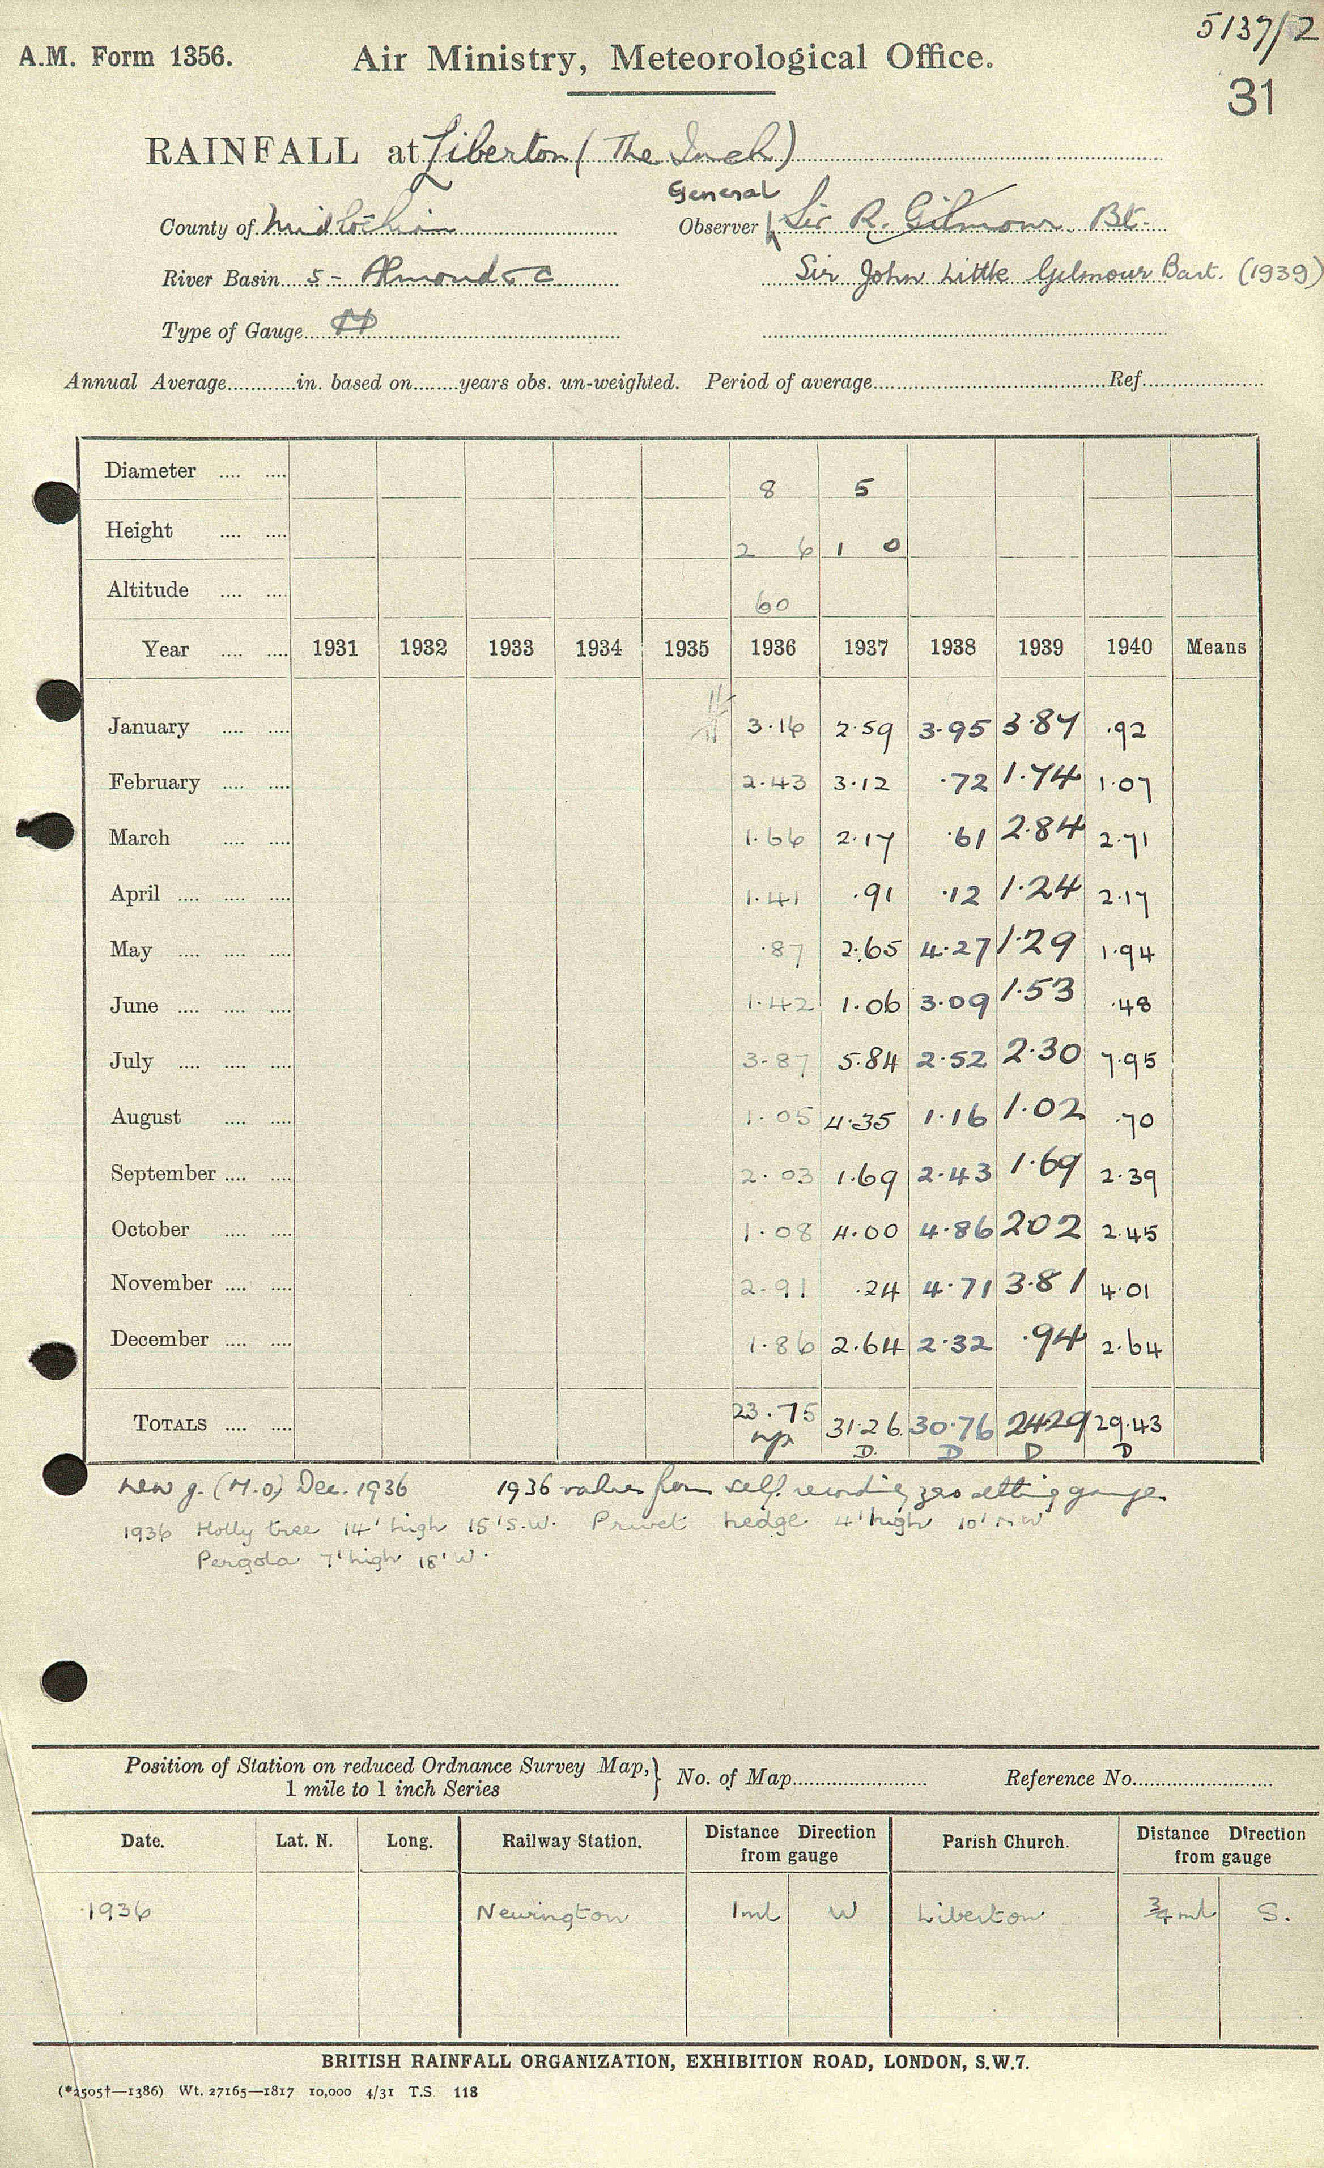 5137/2
A.M. Form 1356. Air Ministry, Meteorological Office.
31
RAINFALL at Liberton (The Inch)
General
County of Midlothian Observer Sir R. Gilmour Bt.
River Basin 5 - Almond & c Sir John Little Gilmour Bart. (1939)
Type of Gauge
Annual Average in. based on years obs. un-weighted. Period of average Ref
Diameter 8 5
Height 2 6 1 0
Altitude 60
Year 1931 1932 1933 1934 1935 1936 1937 1938 1939 1940 Means
January 3.16 2.59 3.95 3.87 .92
February 2.43 3.12 .72 1.74 1.07
March 1.66 2.17 .61 2.84 2.71
April 1.41 .91 .12 1.24 2.17
May .87 2.65 4.27 1.29 1.94
June 1.42 1.06 3.09 1.53 .48
July 3.87 5.84 2.52 2.30 7.95
August 1.05 4.35 1.16 1.02 .70
September 2.03 1.69 2.43 1.69 2.39
October 1.08 4.00 4.86 202 2.45
November 2.91 .24 4.71 3.81 4.01
December 1.86 2.64 2.32 .94 2.64
TOTALS 23.75 31.26 30.76 2429 29.43
D D D D
New g. (M.O) Dec. 1936 1936 values from self recording zero setting gauge
1936 Holly tree 14' high 15' S.W. Privet hedge 4' high 10' N.W
Pergola 7' high 18' W.
Position of Station on reduced Ordnance Survey Map, 1 mile to 1 inch Series } No. of Map Reference No.
Date. Lat. N. Long. Railway Station. Distance Direction from gauge Parish Church. Distance Direction from gauge
1936 Newington 1ml W Liberton 3/4 ml S.
BRITISH RAINFALL ORGANIZATION, EXHIBITION ROAD, LONDON, S.W.7.
(*2505†—1386) Wt. 27165—1817 10,000 4/31 T.S. 118